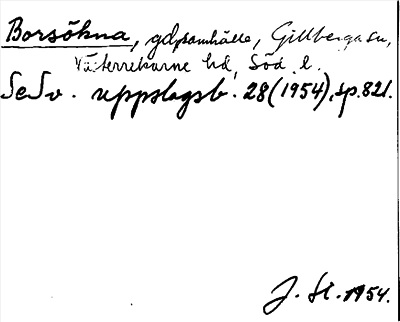 Borsökna, gdpsamhälle, Gillberga sn,
Västerrekarne hd, Söd. l.
Se Sv. uppslagsb. 28 (1954), sp. 821.
J. St. 1954.